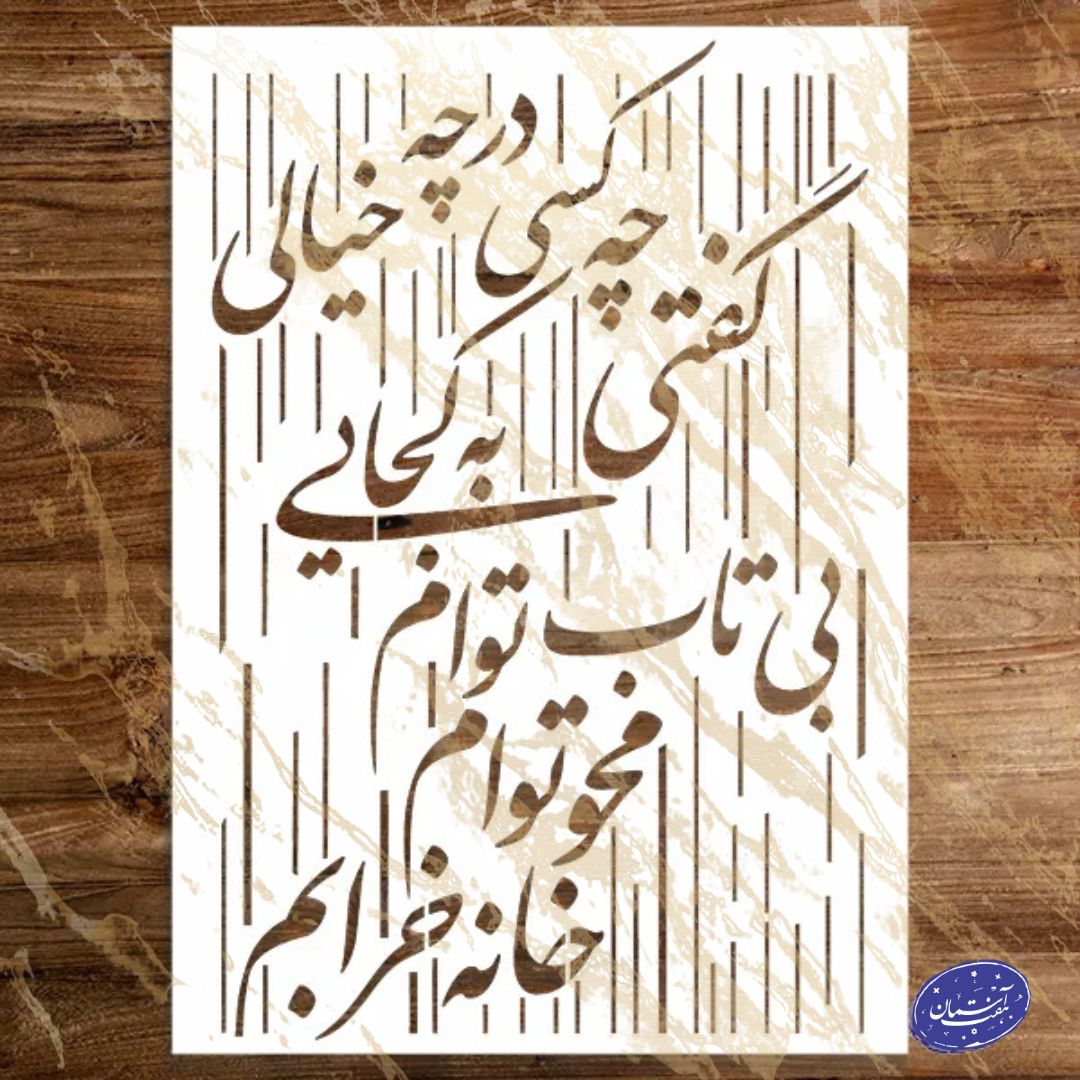 گفتی چه کسی درچه خیالی
به کجایی
بی تاب توام
محو توام
خانه خرابم
هفت آسمان